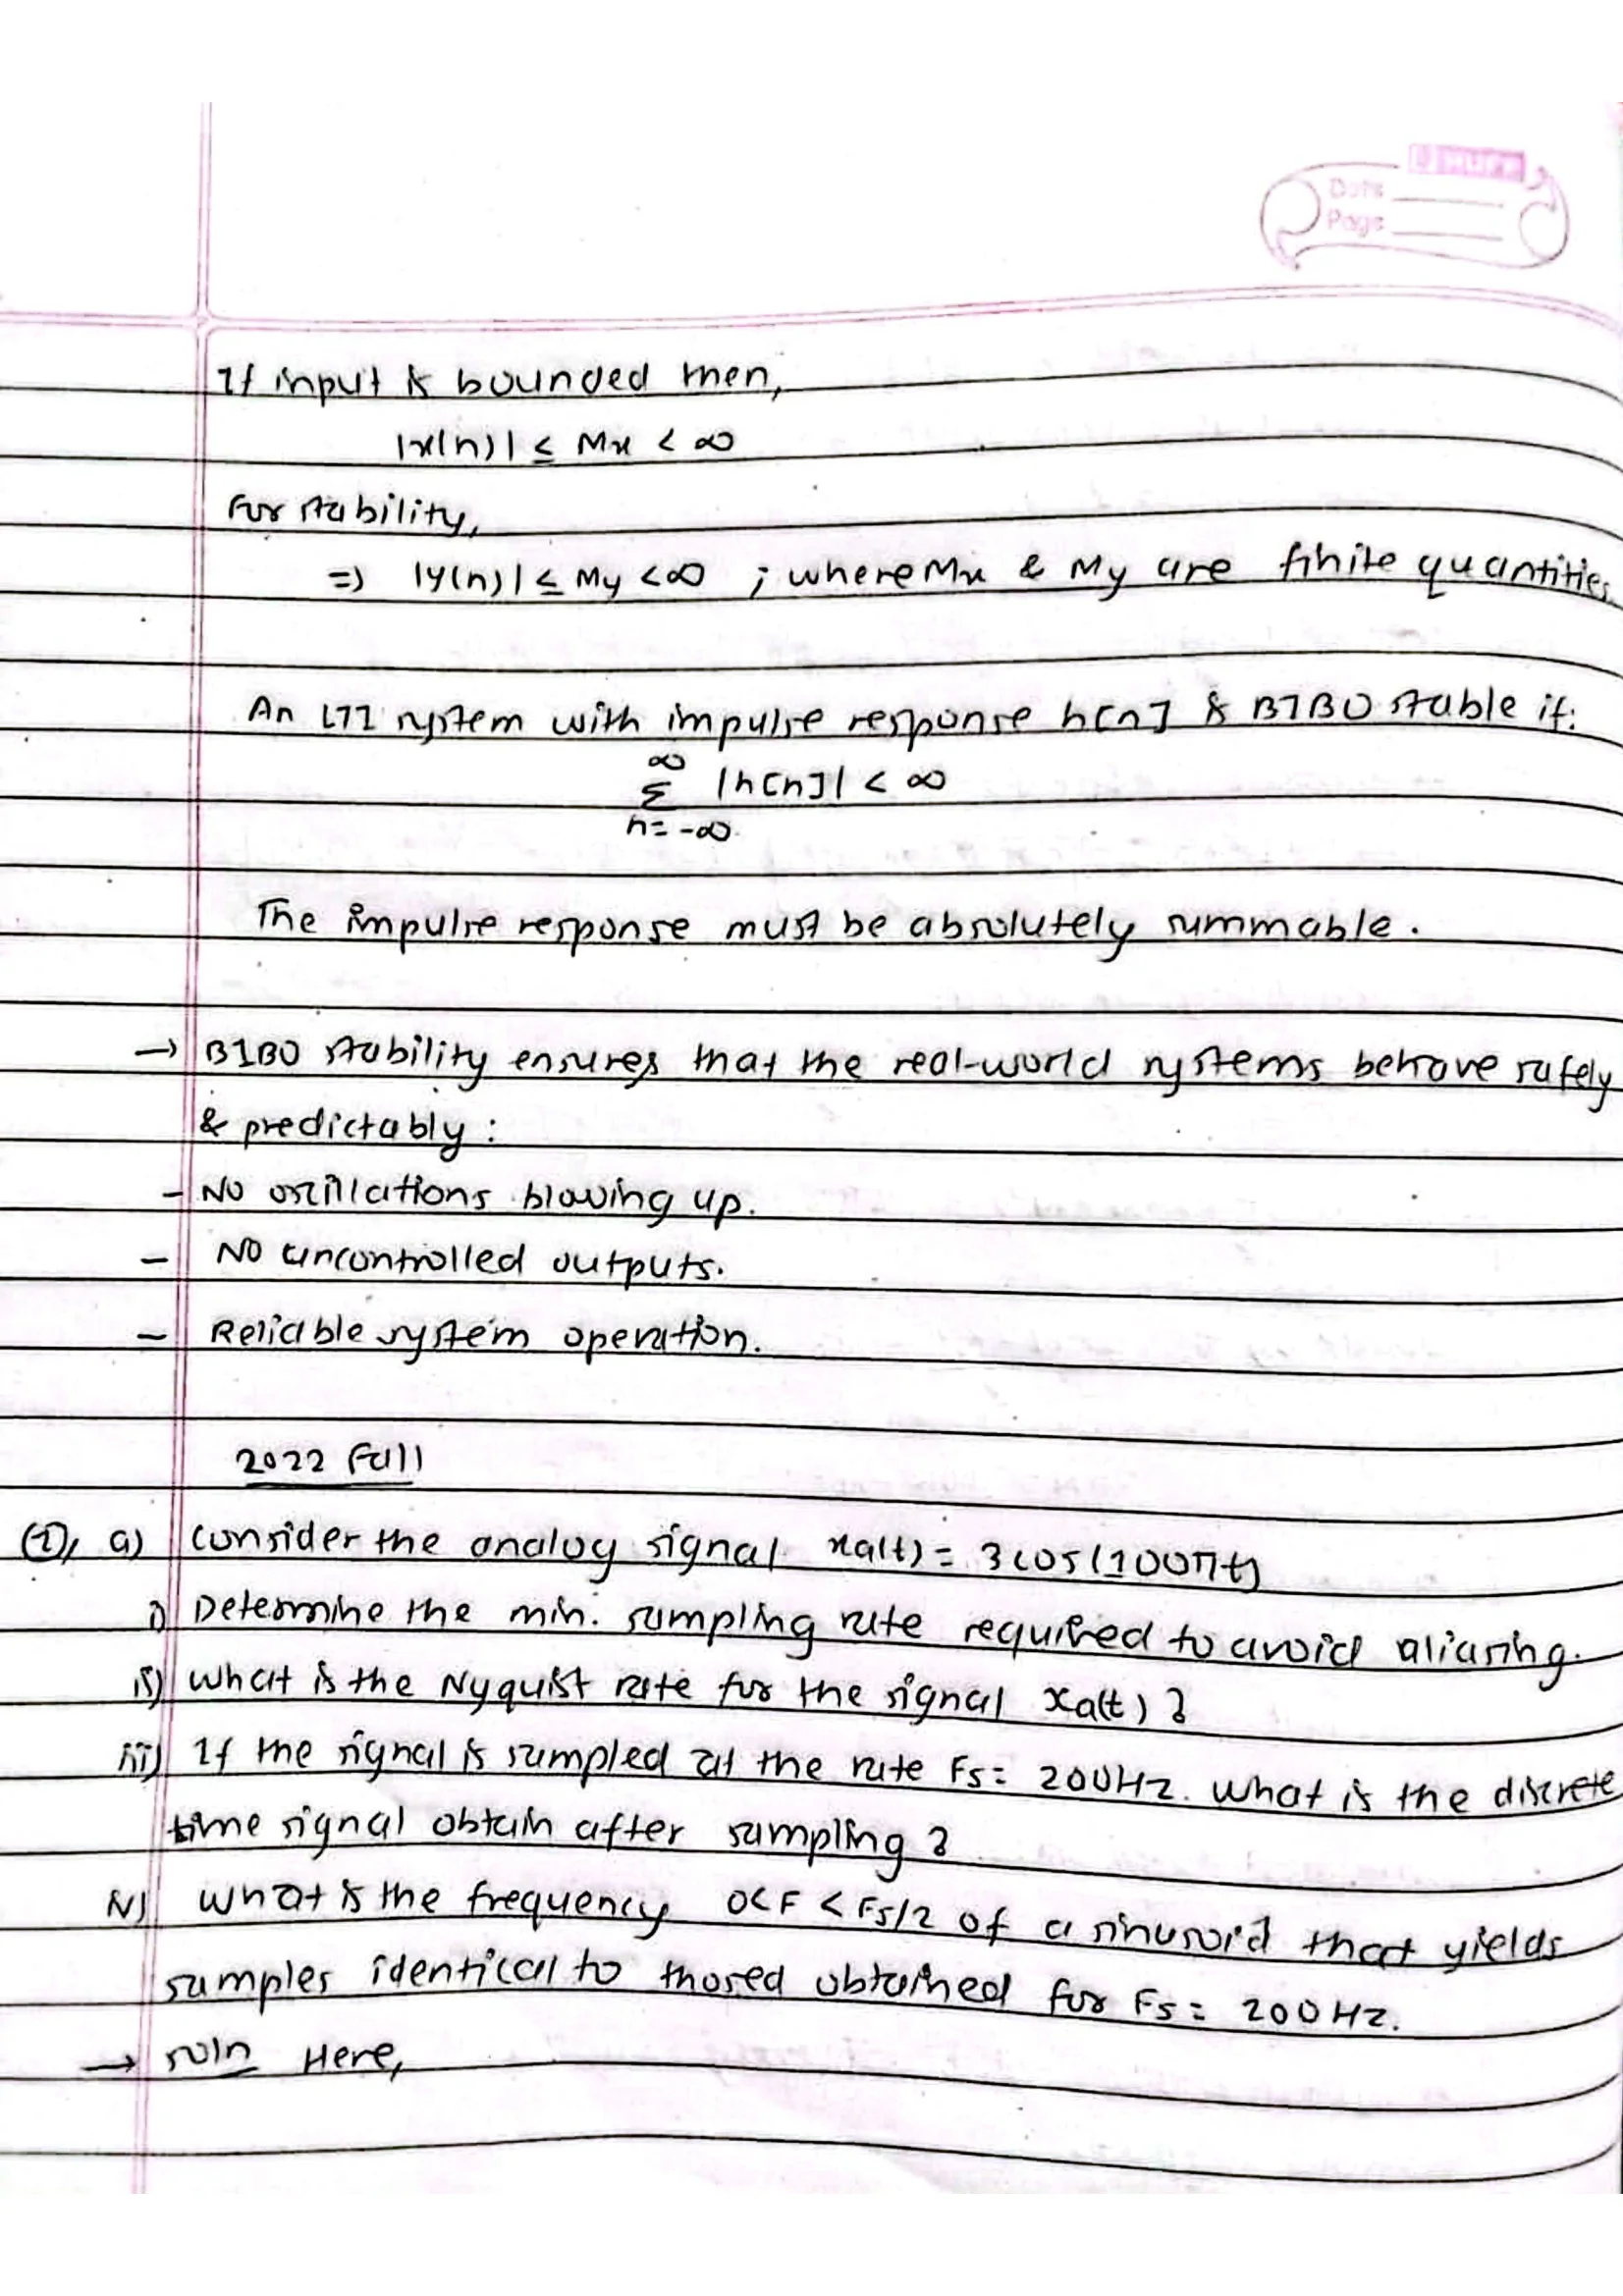 Date
Page
If input is bounded then,
|x(n)| ≤ Mx < ∞
For stability,
=> |y(n)| ≤ My < ∞ ; where Mx & My are finite quantities.
An LTI system with impulse response h[n] is BIBO stable if:
∞
Σ |h[n]| < ∞
n= -∞
The impulse response must be absolutely summable.
→ BIBO stability ensures that the real-world systems behave safely
& predictably :
- No oscillations blowing up.
- No uncontrolled outputs.
- Reliable system operation.
2022 Fall
①, a) Consider the analog signal xa(t) = 3cos(100πt)
i) Determine the min. sampling rate required to avoid aliasing.
ii) What is the Nyquist rate for the signal xa(t) ?
iii) If the signal is sampled at the rate Fs = 200Hz. What is the discrete
time signal obtain after sampling ?
iv) What is the frequency 0<F<Fs/2 of a sinusoid that yields
samples identical to thosed obtained for Fs = 200 Hz.
→ soln Here,